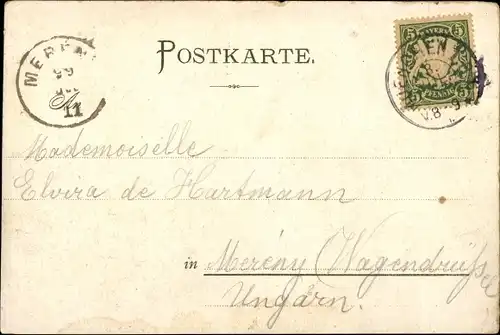 POSTKARTE.
BAYERN
5 5
5 PFENNIG 5
MEREN
11
V.8-9
Mademoiselle
Elvira de Hartmann
in Merény (Wagendrüssel
Ungarn.